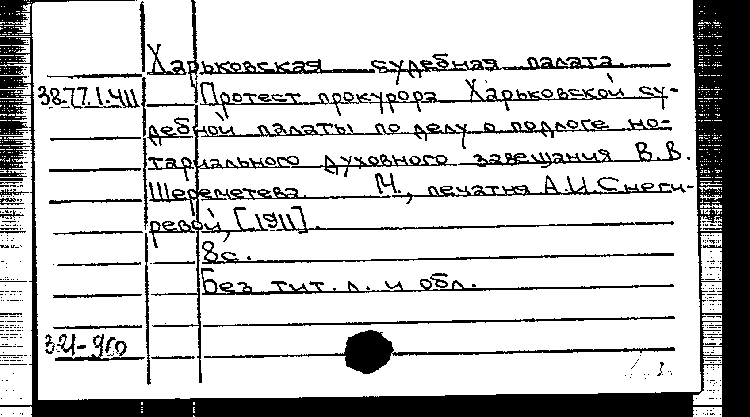 Харьковская судебная палата.
38.77.1.411 Протест прокурора Харьковской су-
дебной палаты по делу о подлоге но-
тариального духовного завещания В.В.
Шереметева. М., печатня А.И.Снеги-
ревой, [1911].
8с.
Без тит. л. и обл.
321-960